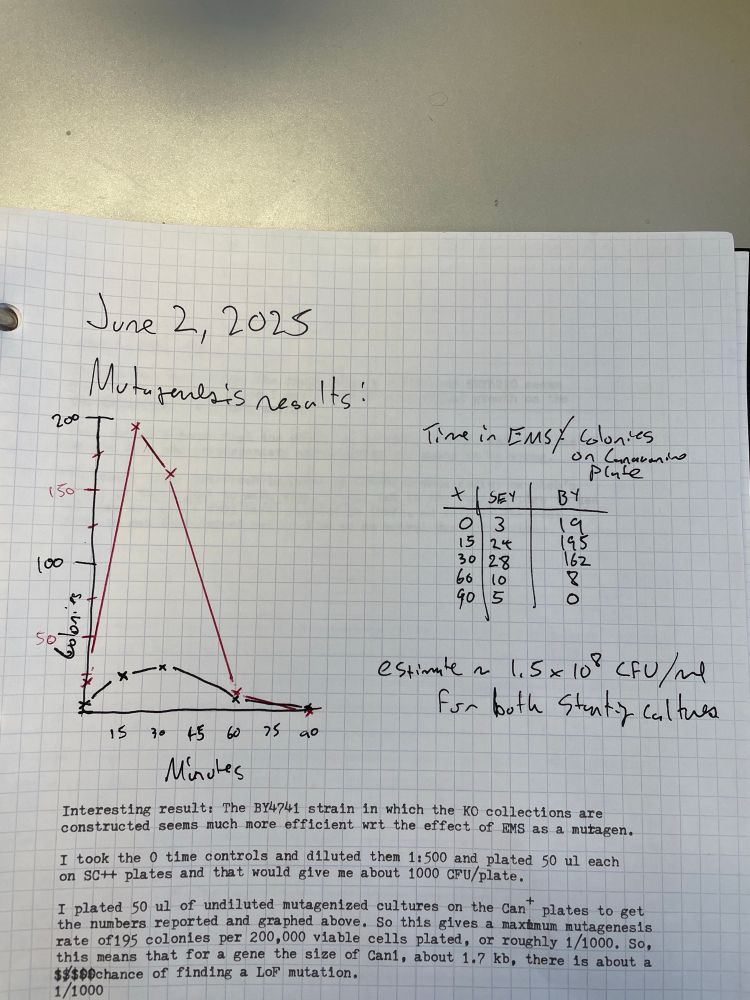 June 2, 2025
Mutagenesis results:
200
150
100
50
Colonies
15 30 45 60 75 90
Minutes
Time in EMS/ Colonies
on Canavanine
plate
X SEY BY
0 3 19
15 24 195
30 28 162
60 10 8
90 5 0
estimate ~ 1.5 x 10⁸ CFU/ml
for both starting cultures
Interesting result: The BY4741 strain in which the KO collections are
constructed seems much more efficient wrt the effect of EMS as a mutagen.
I took the 0 time controls and diluted them 1:500 and plated 50 ul each
on SC++ plates and that would give me about 1000 CFU/plate.
I plated 50 ul of undiluted mutagenized cultures on the Can⁺ plates to get
the numbers reported and graphed above. So this gives a maximum mutagenesis
rate of195 colonies per 200,000 viable cells plated, or roughly 1/1000. So,
this means that for a gene the size of Can1, about 1.7 kb, there is about a
chance of finding a LoF mutation.
1/1000